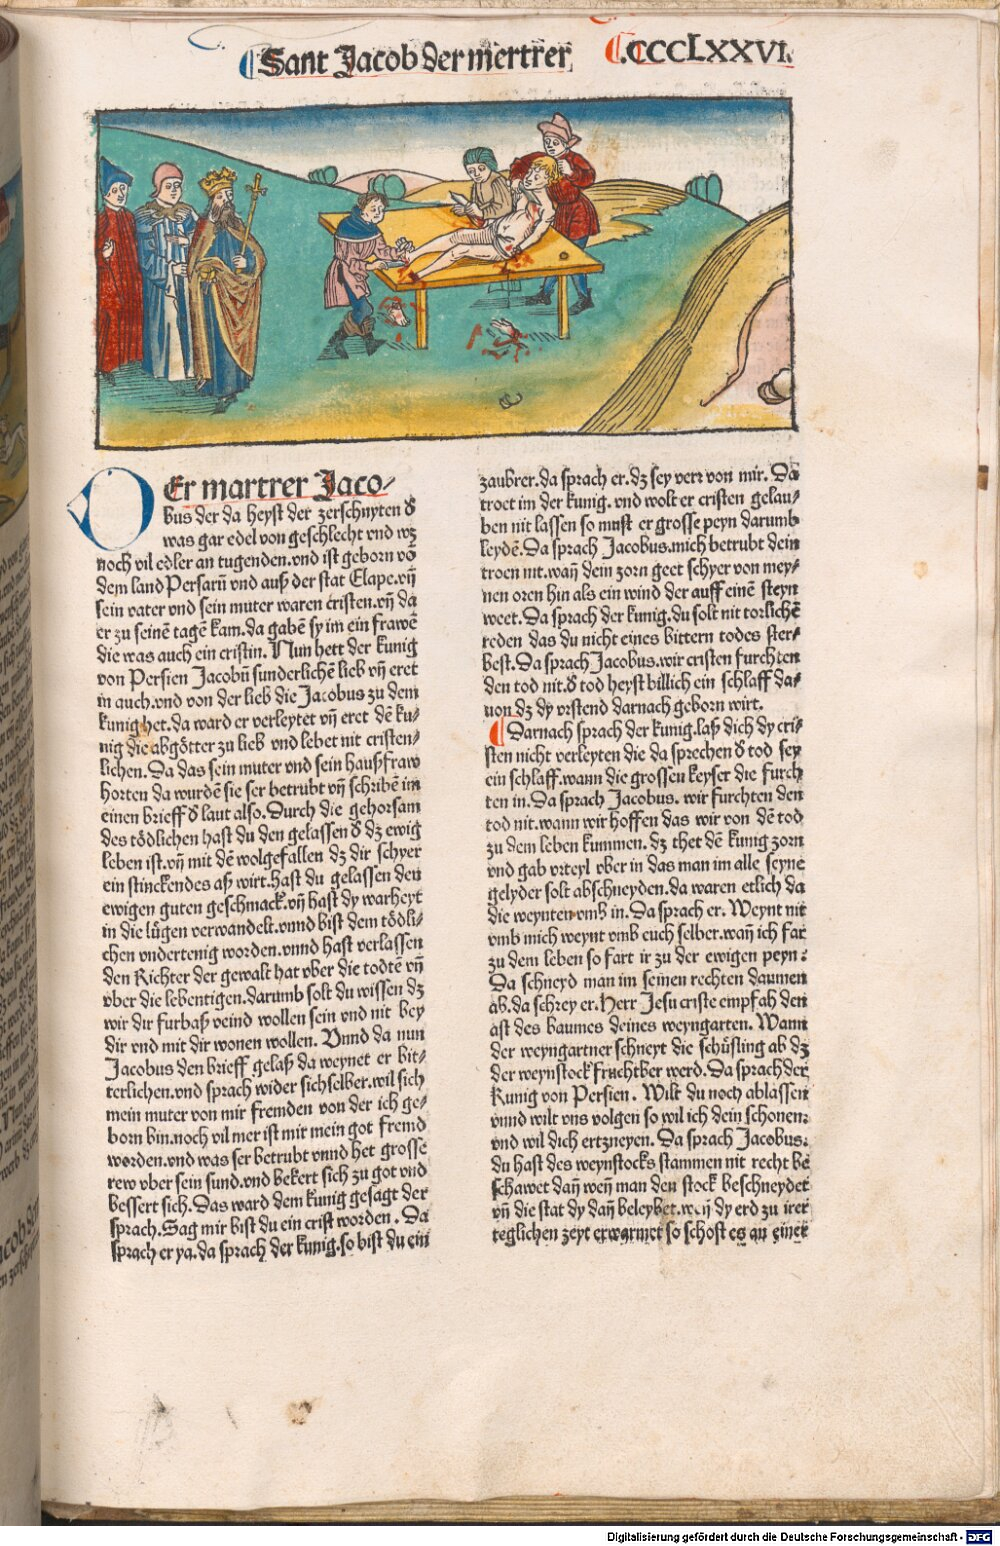 Sant Jacob der mertrer.
.CCCLXXVI.
DEr martrer Jaco/
bus der da heyst der zerschnyten ď
was gar edel von geschlecht vnd wz
noch vil edler an tugenden. vnd ist geborn vō
dem land Persarū vnd auß der stat Elape. vñ
sein vater vnd sein muter waren cristen. vñ da
er zu seinē tagē kam. da gabē sy im ein frawē
die was auch ein cristin. Nun hett der kunig
von Persien Jacobū sunderlichē lieb vñ eret
in auch. vnd von der lieb die Jacobus zu dem
kunig het. da ward er verleytet vñ eret dē ku/
nig die abgötter zu lieb vnd lebet nit cristen/
lichen. Da das sein muter vnd sein haußfraw
horten da wurdē sie ser betrubt vñ schribē im
einen brieff ď laut also. Durch die gehorsam
des tödlichen hast du den gelassen ď dz ewig
leben ist. vñ mit dē wolgefallen dz dir schyer
ein stinckendes aß wirt. hast du gelassen den
ewigen guten geschmack. vñ hast dy warheyt
in die lůgen verwandelt. vnnd bist dem tödli/
chen vndertenig worden. vnnd hast verlassen
den Richter der gewalt hat vber die todtē vñ
vber die lebentigen. darumb solt du wissen dz
wir dir furbaß veind wollen sein vnd nit bey
dir vnd mit dir wonen wollen. Vnnd da nun
Jacobus den brieff gelaß da weynet er bit/
terlichen. vnd sprach wider sich selber. wil sich
mein muter von mir fremden von der ich ge/
born bin. noch vil mer ist mir mein got fremd
worden. vnd was ser betrubt vnnd het grosse
rew vber sein sund. vnd bekert sich zu got vnd
bessert sich. Das ward dem kunig gesagt der
sprach. Sag mir bist du ein crist worden. Da
sprach er ya. da sprach der kunig. so bist du ein
zaubrer. da sprach er. dz sey verr von mir. Da
troet im der kunig. vnd wolt er cristen gelau/
ben nit lassen so must er grosse peyn darumb
leydē. Da sprach Jacobus. mich betrubt dein
troen nit. wañ dein zorn geet schyer von mey/
nen oren hin als ein wind der auff einē steyn
weet. Da sprach der kunig. du solt nit torlichē
reden das du nicht eines bittern todes ster/
best. Da sprach Jacobus. wir cristen furchten
den tod nit. ď tod heyst billich ein schlaff da/
uon dz dy vrstend darnach geborn wirt.
Darnach sprach der kunig. laß dich dy cri/
sten nicht verleyten die da sprechen ď tod sey
ein schlaff. wann die grossen keyser die furch
ten in. Da sprach Jacobus. wir furchten den
tod nit. wann wir hoffen das wir von dē tod
zu dem leben kummen. dz thet dē kunig zorn
vnd gab vrteyl vber in das man im alle seyne
gelyder solt abschneyden. da waren etlich da
die weynten vmb in. Da sprach er. Weynt nit
vmb mich weynt vmb euch selber. wañ ich far
zu dem leben so fart ir zu der ewigen peyn:
Da schneyd man im seinen rechten daumen
ab. da schrey er. Herr Jesu criste empfah den
ast des baumes deines weyngarten. Wann
der weyngartner schneyt die schůsling ab dz
der weynstock fruchtber werd. Da sprach der
Kunig von Persien. Wilt du noch ablassen
vnnd wilt vns volgen so wil ich dein schonen:
vnd wil dich ertzneyen. Da sprach Jacobus:
du hast des weynstocks stammen nit recht be
schawet dañ weñ man den stock beschneydet
vñ die stat dy dañ beleybet. weñ dy erd zu irer
teglichen zeyt erwarmet so schost es an einer
Digitalisierung gefördert durch die Deutsche Forschungsgemeinschaft - DFG